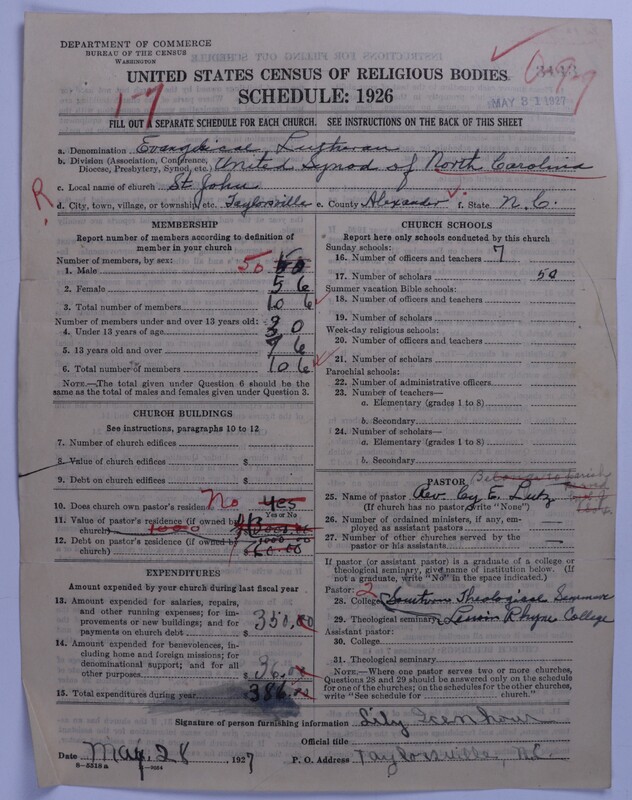 DEPARTMENT OF COMMERCE
BUREAU OF THE CENSUS
WASHINGTON
UNITED STATES CENSUS OF RELIGIOUS BODIES
SCHEDULE: 1926
1-7
MAY 31 1927
FILL OUT A SEPARATE SCHEDULE FOR EACH CHURCH. SEE INSTRUCTIONS ON THE BACK OF THIS SHEET
a. Denomination Evangelical Lutheran
b. Division (Association, Conference, Diocese, Presbytery, Synod, etc.) United Synod of North Carolina
c. Local name of church St John
R
d. City, town, village, or township, etc. Taylorsville e. County Alexander f. State N. C.
MEMBERSHIP
Report number of members according to definition of member in your church
Number of members, by sex:
1. Male 50
2. Female 56
3. Total number of members 106
Number of members under and over 13 years old:
4. Under 13 years of age 30
5. 13 years old and over 76
6. Total number of members 106
NOTE.—The total given under Question 6 should be the same as the total of males and females given under Question 3.
CHURCH BUILDINGS
See instructions, paragraphs 10 to 12
7. Number of church edifices
8. Value of church edifices $
9. Debt on church edifices $
10. Does church own pastor's residence No Yes
Yes or No
11. Value of pastor's residence (if owned by church) 1000 $
12. Debt on pastor's residence (if owned by church) $
EXPENDITURES
Amount expended by your church during last fiscal year
13. Amount expended for salaries, repairs, and other running expenses; for improvements or new buildings; and for payments on church debt $ 350.00
14. Amount expended for benevolences, including home and foreign missions; for denominational support; and for all other purposes $ 36.00
15. Total expenditures during year 386.00
CHURCH SCHOOLS
Report here only schools conducted by this church
Sunday schools:
16. Number of officers and teachers 7
17. Number of scholars 50
Summer vacation Bible schools:
18. Number of officers and teachers
19. Number of scholars
Week-day religious schools:
20. Number of officers and teachers
21. Number of scholars
Parochial schools:
22. Number of administrative officers
23. Number of teachers—
a. Elementary (grades 1 to 8)
b. Secondary
24. Number of scholars—
a. Elementary (grades 1 to 8)
b. Secondary
PASTOR
25. Name of pastor Rev. Cy E. Lutz
(If church has no pastor, write "None")
26. Number of ordained ministers, if any, employed as assistant pastors —
27. Number of other churches served by the pastor or his assistants —
If pastor (or assistant pastor) is a graduate of a college or theological seminary, give name of institution below. (If not a graduate, write "No" in the space indicated.)
Pastor: 2
28. College Southern Theological Seminary
29. Theological seminary Lenoir Rhyne College
Assistant pastor:
30. College
31. Theological seminary
NOTE.—Where one pastor serves two or more churches, Questions 28 and 29 should be answered only on the schedule for one of the churches; on the schedules for the other churches, write "See schedule for church."
Signature of person furnishing information Lily Icenhour
Official title
Date May, 28, 1927 P. O. Address Taylorsville, N.C.
8—5318a